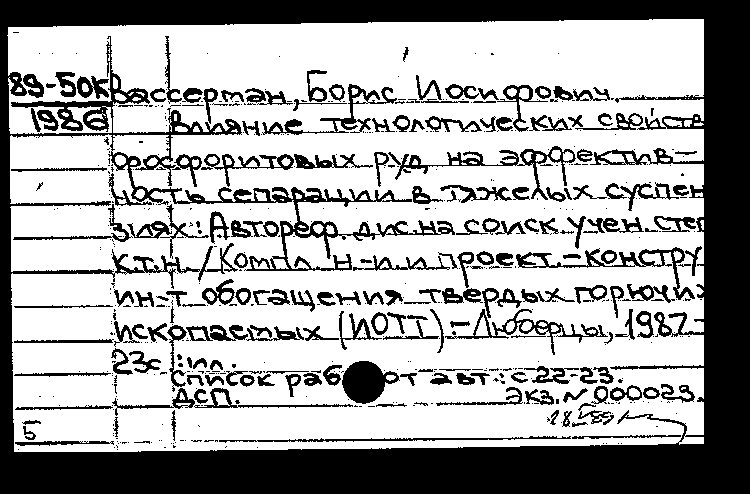 89-50К Вассерман, Борис Иосифович.
1986 Влияние технологических свойств
фосфоритовых руд на эффектив-
ность сепарации в тяжелых суспен
зиях: Автореф. дис. на соиск. учен. степ
к.т.н. / Компл. н.-и. и проект.-констру
ин-т обогащения твердых горючих
ископаемых (ИОТТ).- Люберцы, 1987.-
23с :ил.
Список раб от авт.: с.22-23.
ДСП. Экз. N 000023.
5